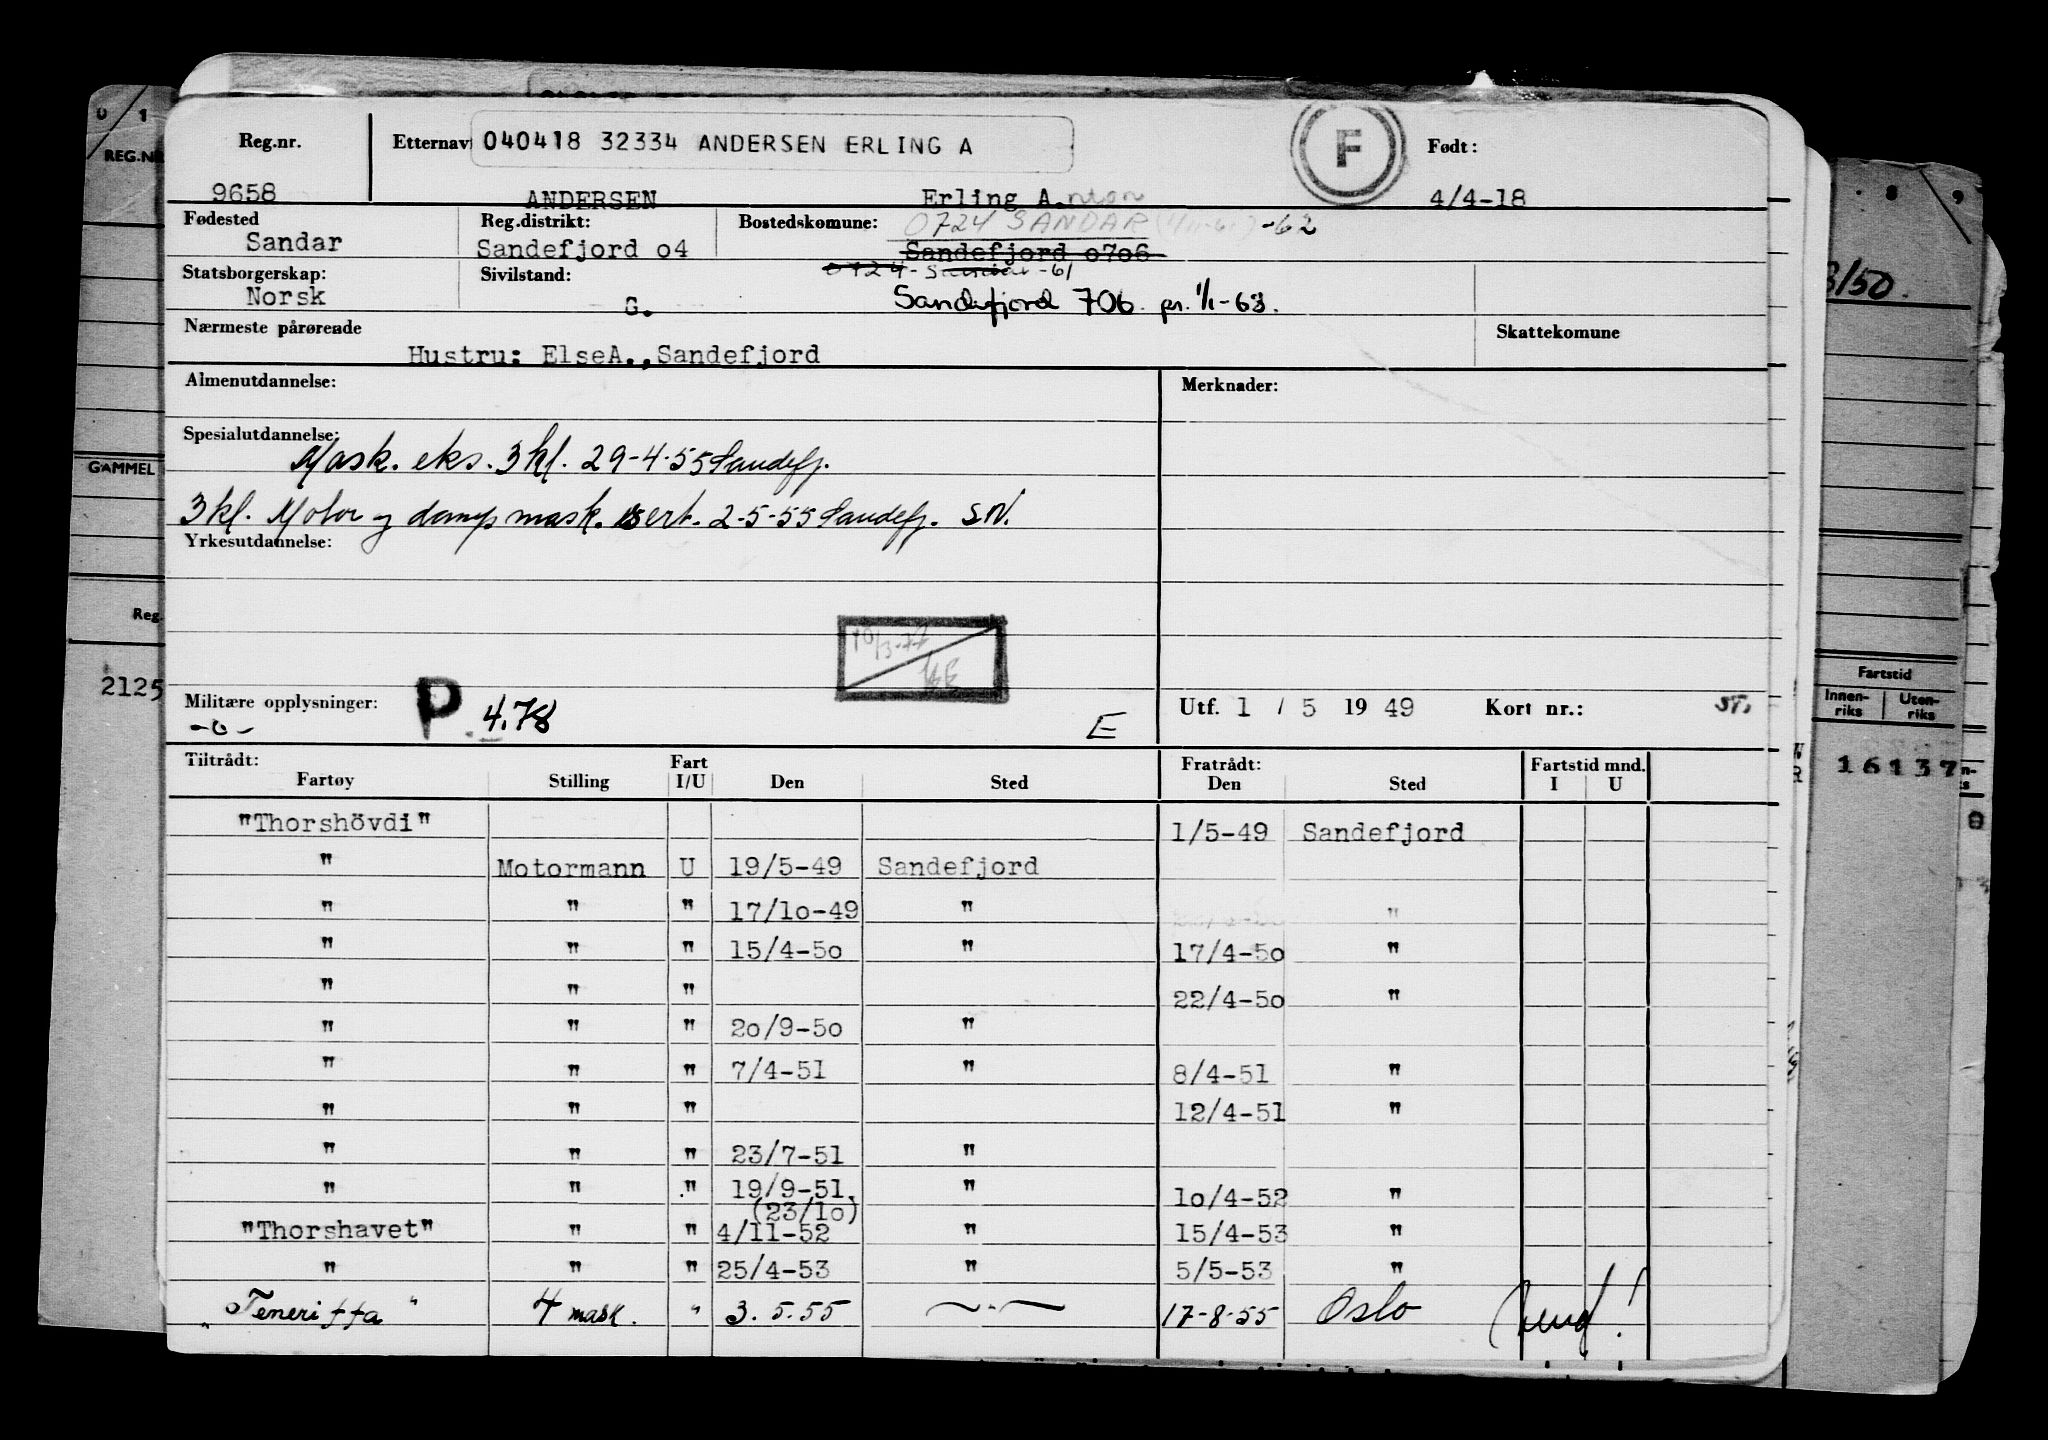 0 / 1
REG.NR
GAMMEL
Reg.
2125
Reg.nr.
Etternavn
040418 32334 ANDERSEN ERLING A
F
Født:
9658
ANDERSEN
Erling Anton
4/4-18
Fødested
Reg.distrikt:
Bostedskomune:
0724 SANDAR
-62
Sandar
Sandefjord o4
Sandefjord o7o6
Statsborgerskap:
Sivilstand:
0724-Sandar -61
Norsk
G.
Sandefjord 706 pr. 1/1-63.
Nærmeste pårørende
Skattekomune
Hustru: ElseA.,Sandefjord
Almenutdannelse:
Merknader:
Spesialutdannelse:
Mask. eks. 3 kl. 29-4-55 Sandefj.
3 kl. Motor og damp mask. sert. 2-5-55 Sandefj. S.N.
Yrkesutdannelse:
10/3-77
Militære opplysninger:
-o-
P 4.78
E
Utf. 1 / 5 19 49 Kort nr.: ST.
Tiltrådt:
Fart
Fratrådt:
Fartstid mnd.
Fartøy Stilling I/U Den Sted Den Sted I U
"Thorshövdi" 1/5-49 Sandefjord
" Motormann U 19/5-49 Sandefjord
" " " 17/1o-49 " "
" " " 15/4-5o " 17/4-5o "
" " " 22/4-5o "
" " " 2o/9-5o "
" " " 7/4-51 " 8/4-51 "
" " " 12/4-51 "
" " " 23/7-51 "
" " " 19/9-51. " 1o/4-52 "
(23/1o)
"Thorshavet" " " 4/11-52 " 15/4-53 "
" " " 25/4-53 " 5/5-53 "
"Teneriffa" 4 mask. " 3.5.55 —"— 17-8-55 Oslo
8 9
3/50.
Fartstid
Innen-
riks
Uten-
riks
16137